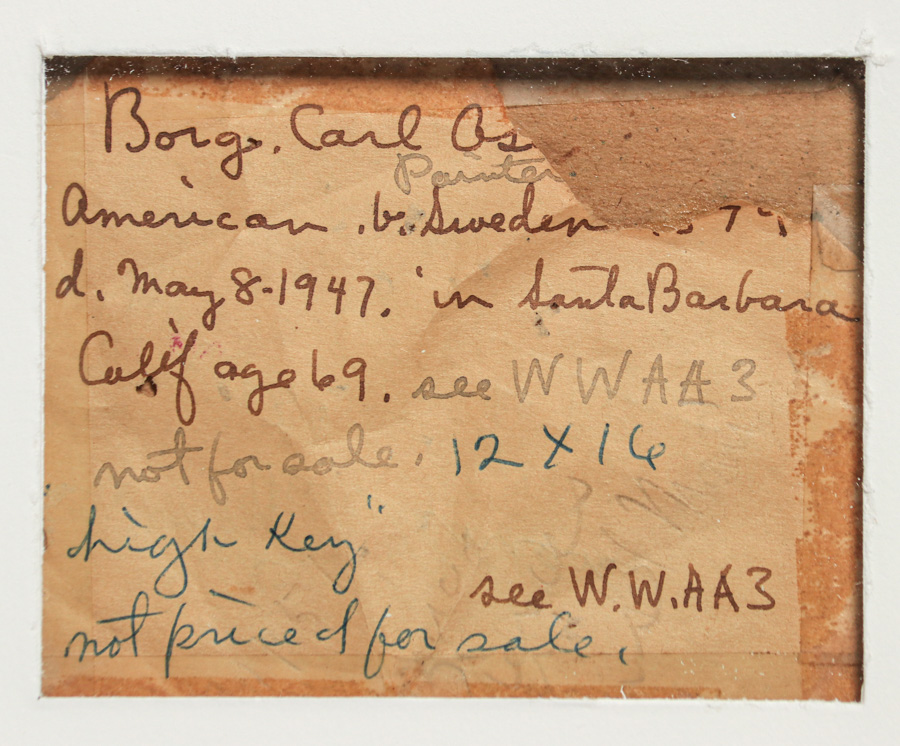 Borg, Carl Os
Painter
American . b. Sweden
d. May 8-1947. in Santa Barbara
Calif age 69. see WWAA3
not for sale. 12 X 16
"high Key"
see W.W.AA3
not priced for sale.